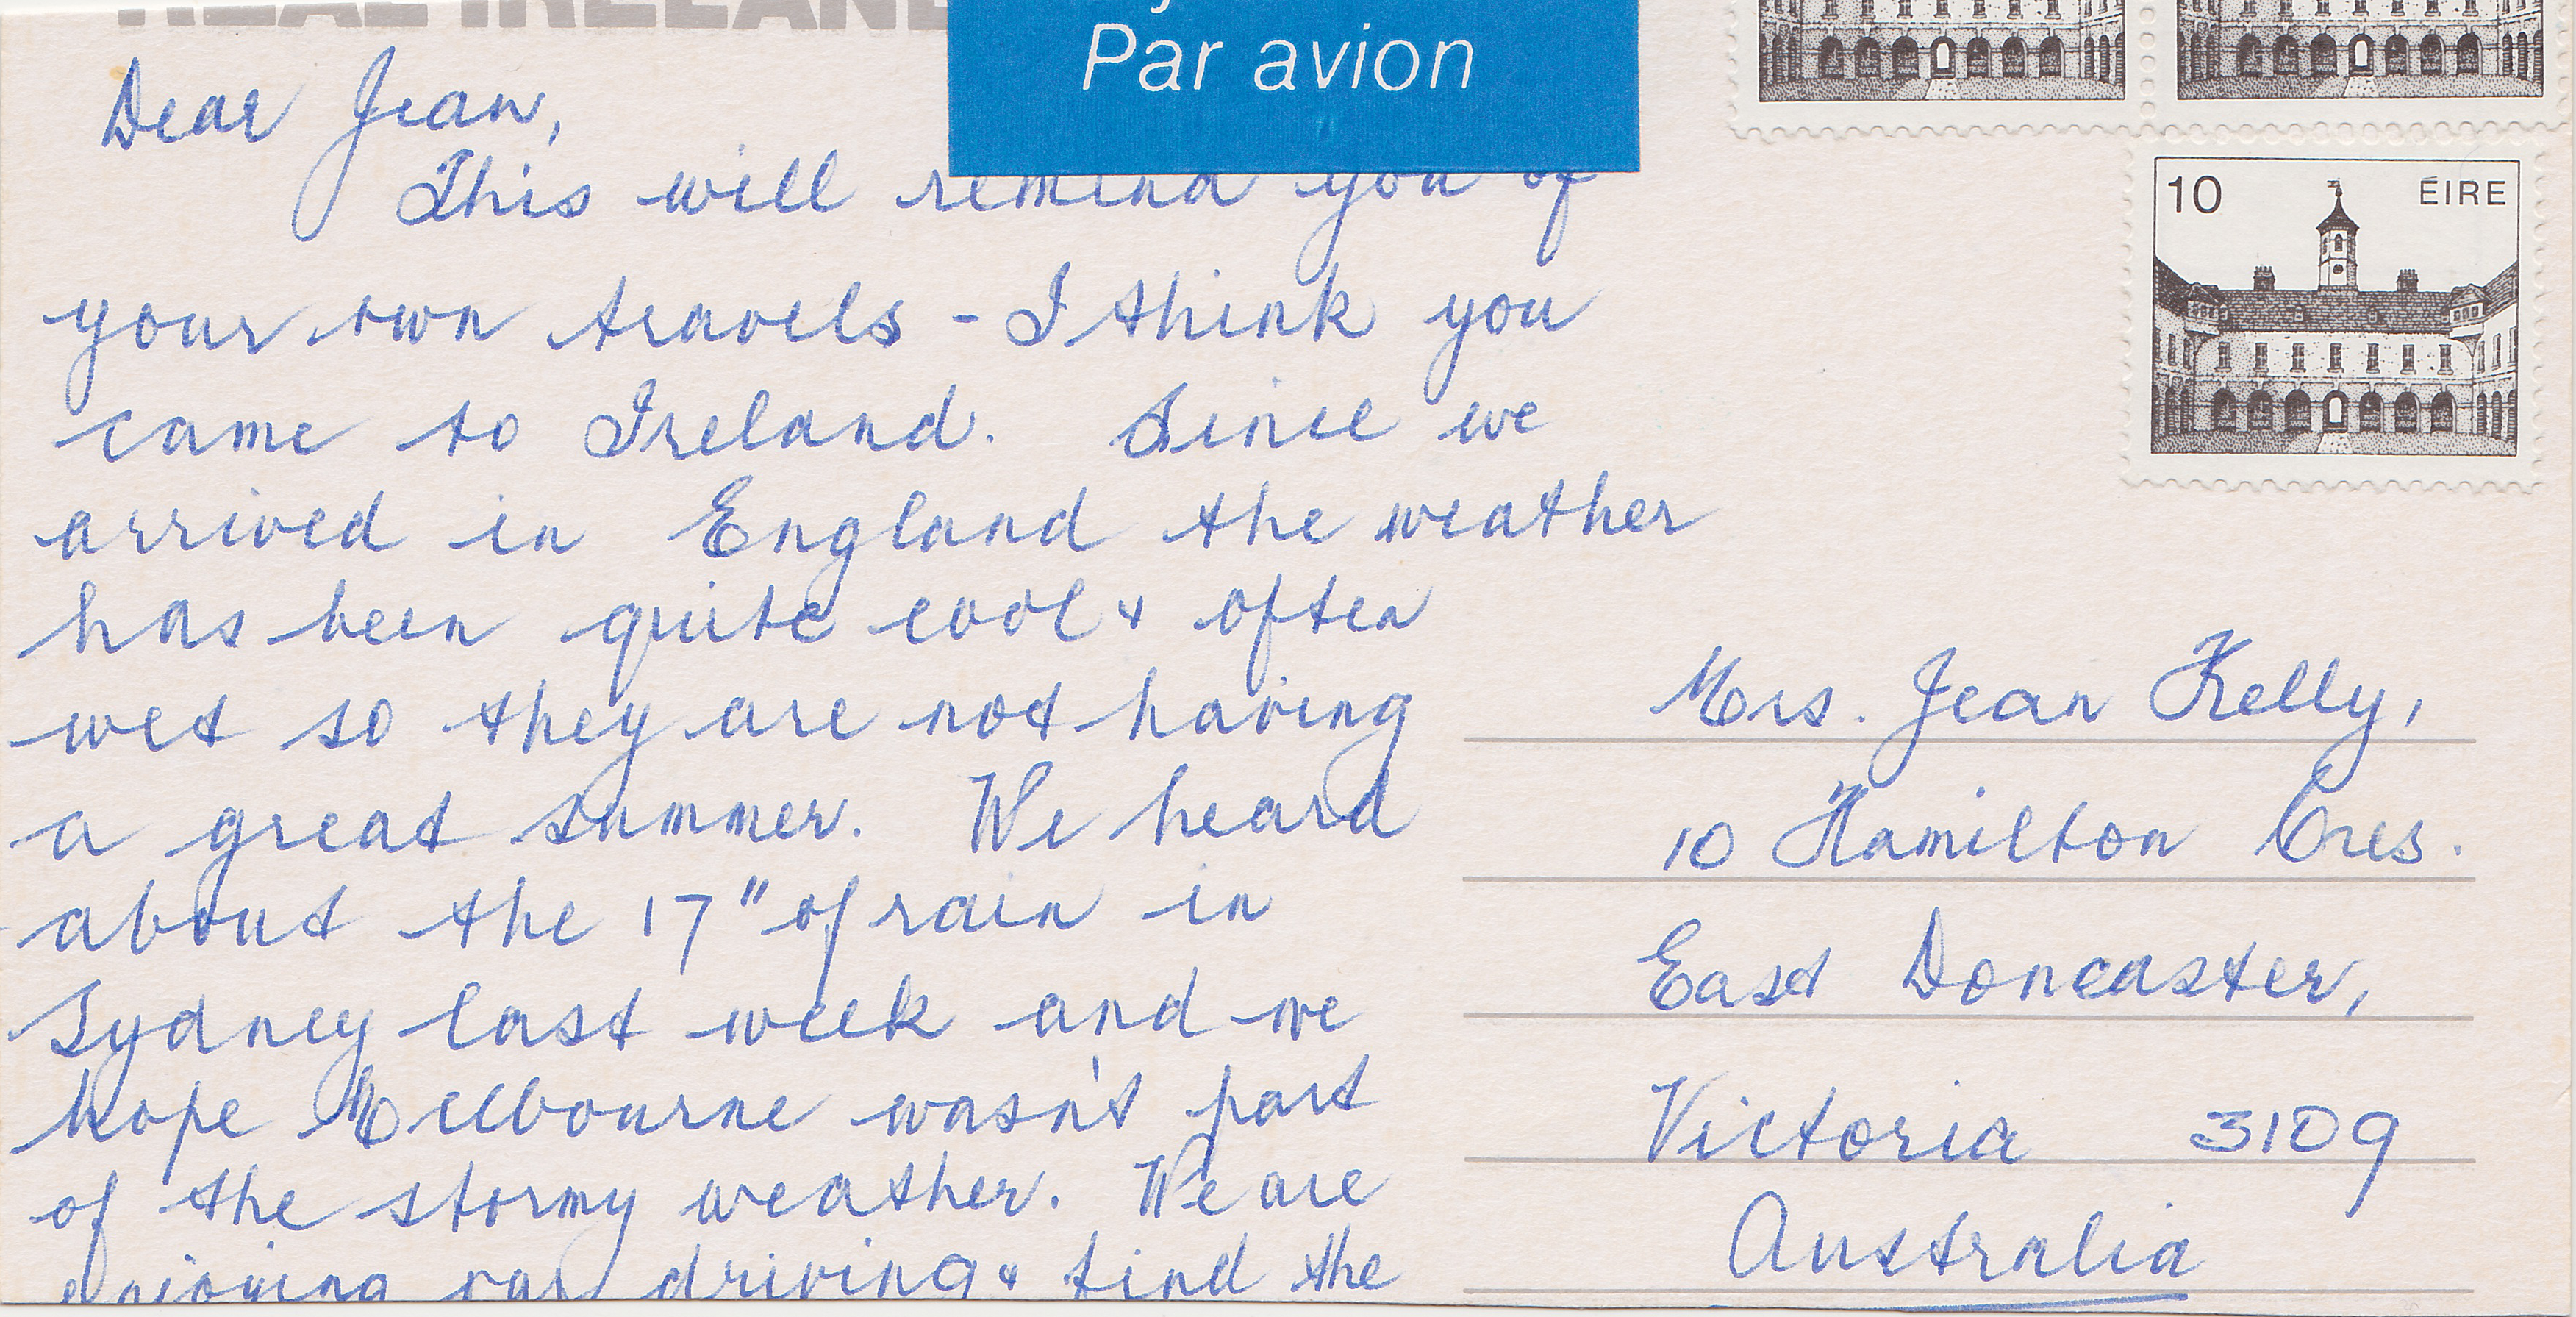 REAL IRELAND
Par avion
10 EIRE
Dear Jean,
This will remind you of
your own travels - I think you
came to Ireland. Since we
arrived in England the weather
has been quite cool & often
wet so they are not having
a great summer. We heard
about the 17" of rain in
Sydney last week and we
hope Melbourne wasn't part
of the stormy weather. We are
enjoying our driving & find the
Mrs. Jean Kelly,
10 Hamilton Cres.
East Doncaster,
Victoria 3109
Australia